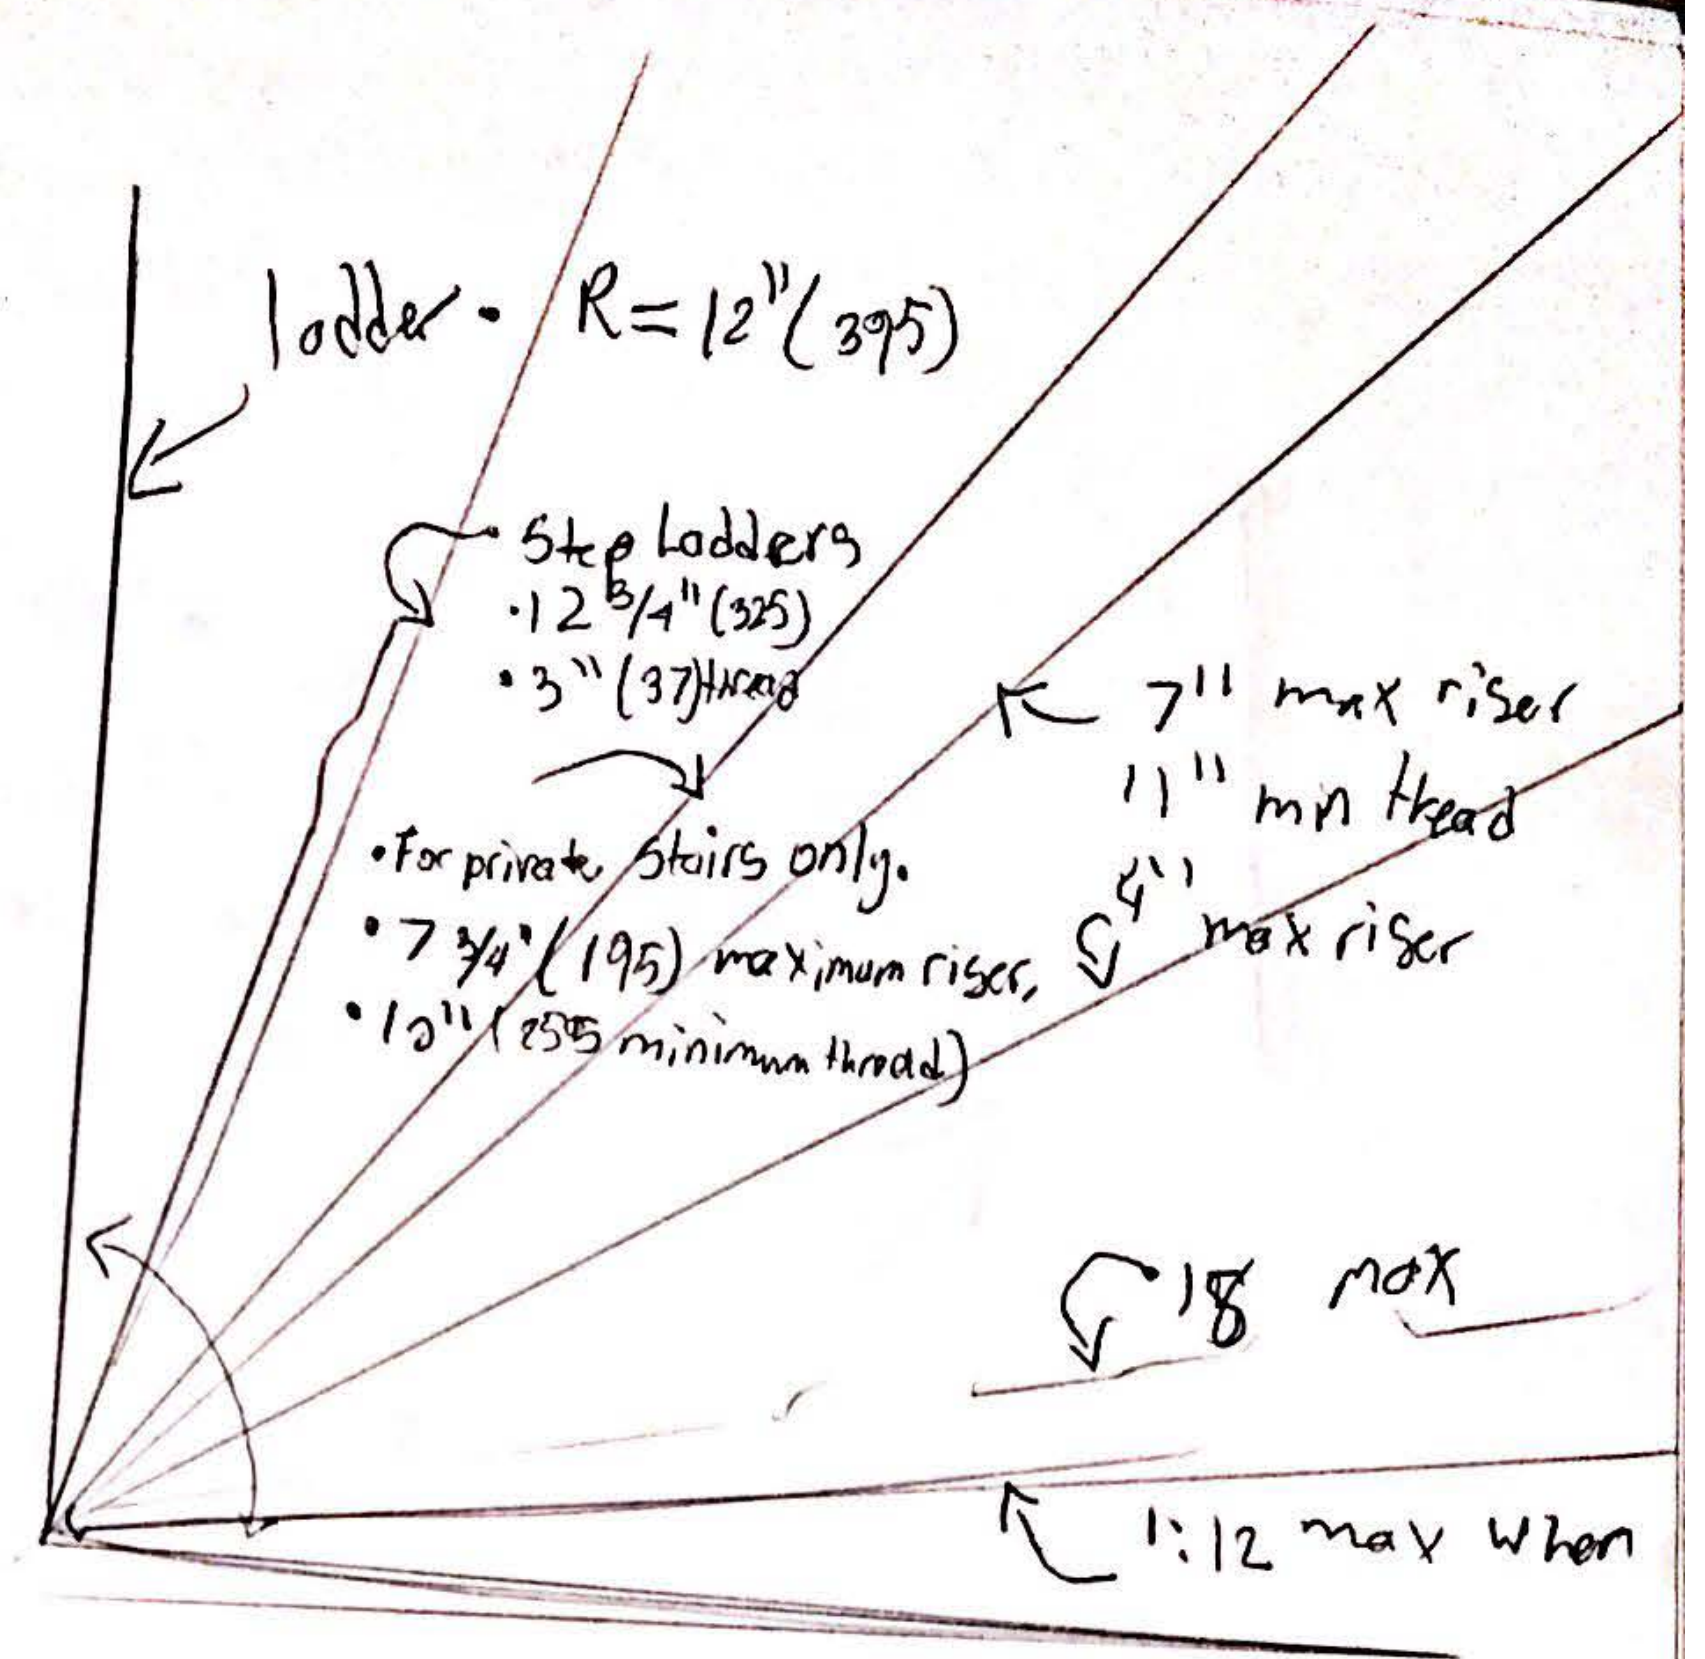 ladder • R=12"(395)
Step Ladders
•12 3/4" (325)
•3" (37)thread
7" max riser
11" min thread
•For private stairs only.
4"
max riser
•7 3/4" (195) maximum riser,
•10" (255 minimum thread)
18 max
1:12 max when